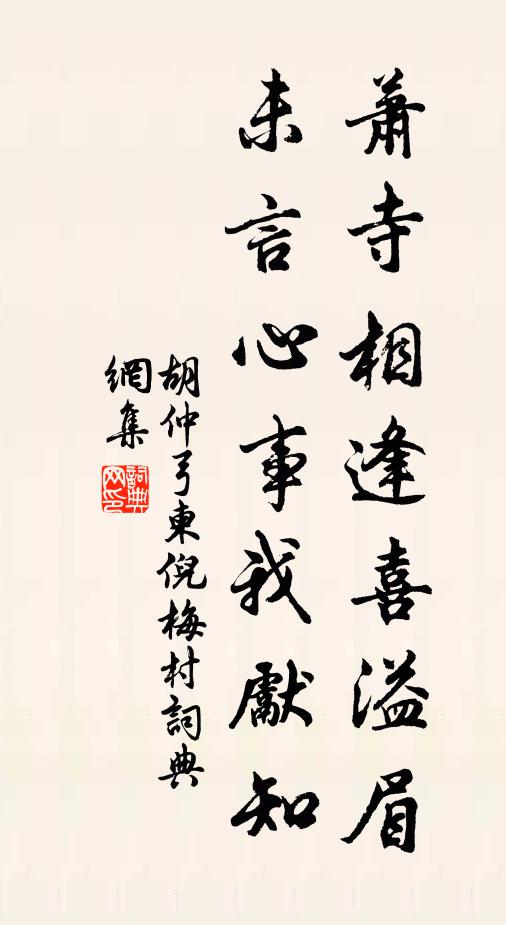 蕭寺相逢喜溢眉
未言心事我獻知
胡仲弓東倪梅村詞典
網集
詞典網印